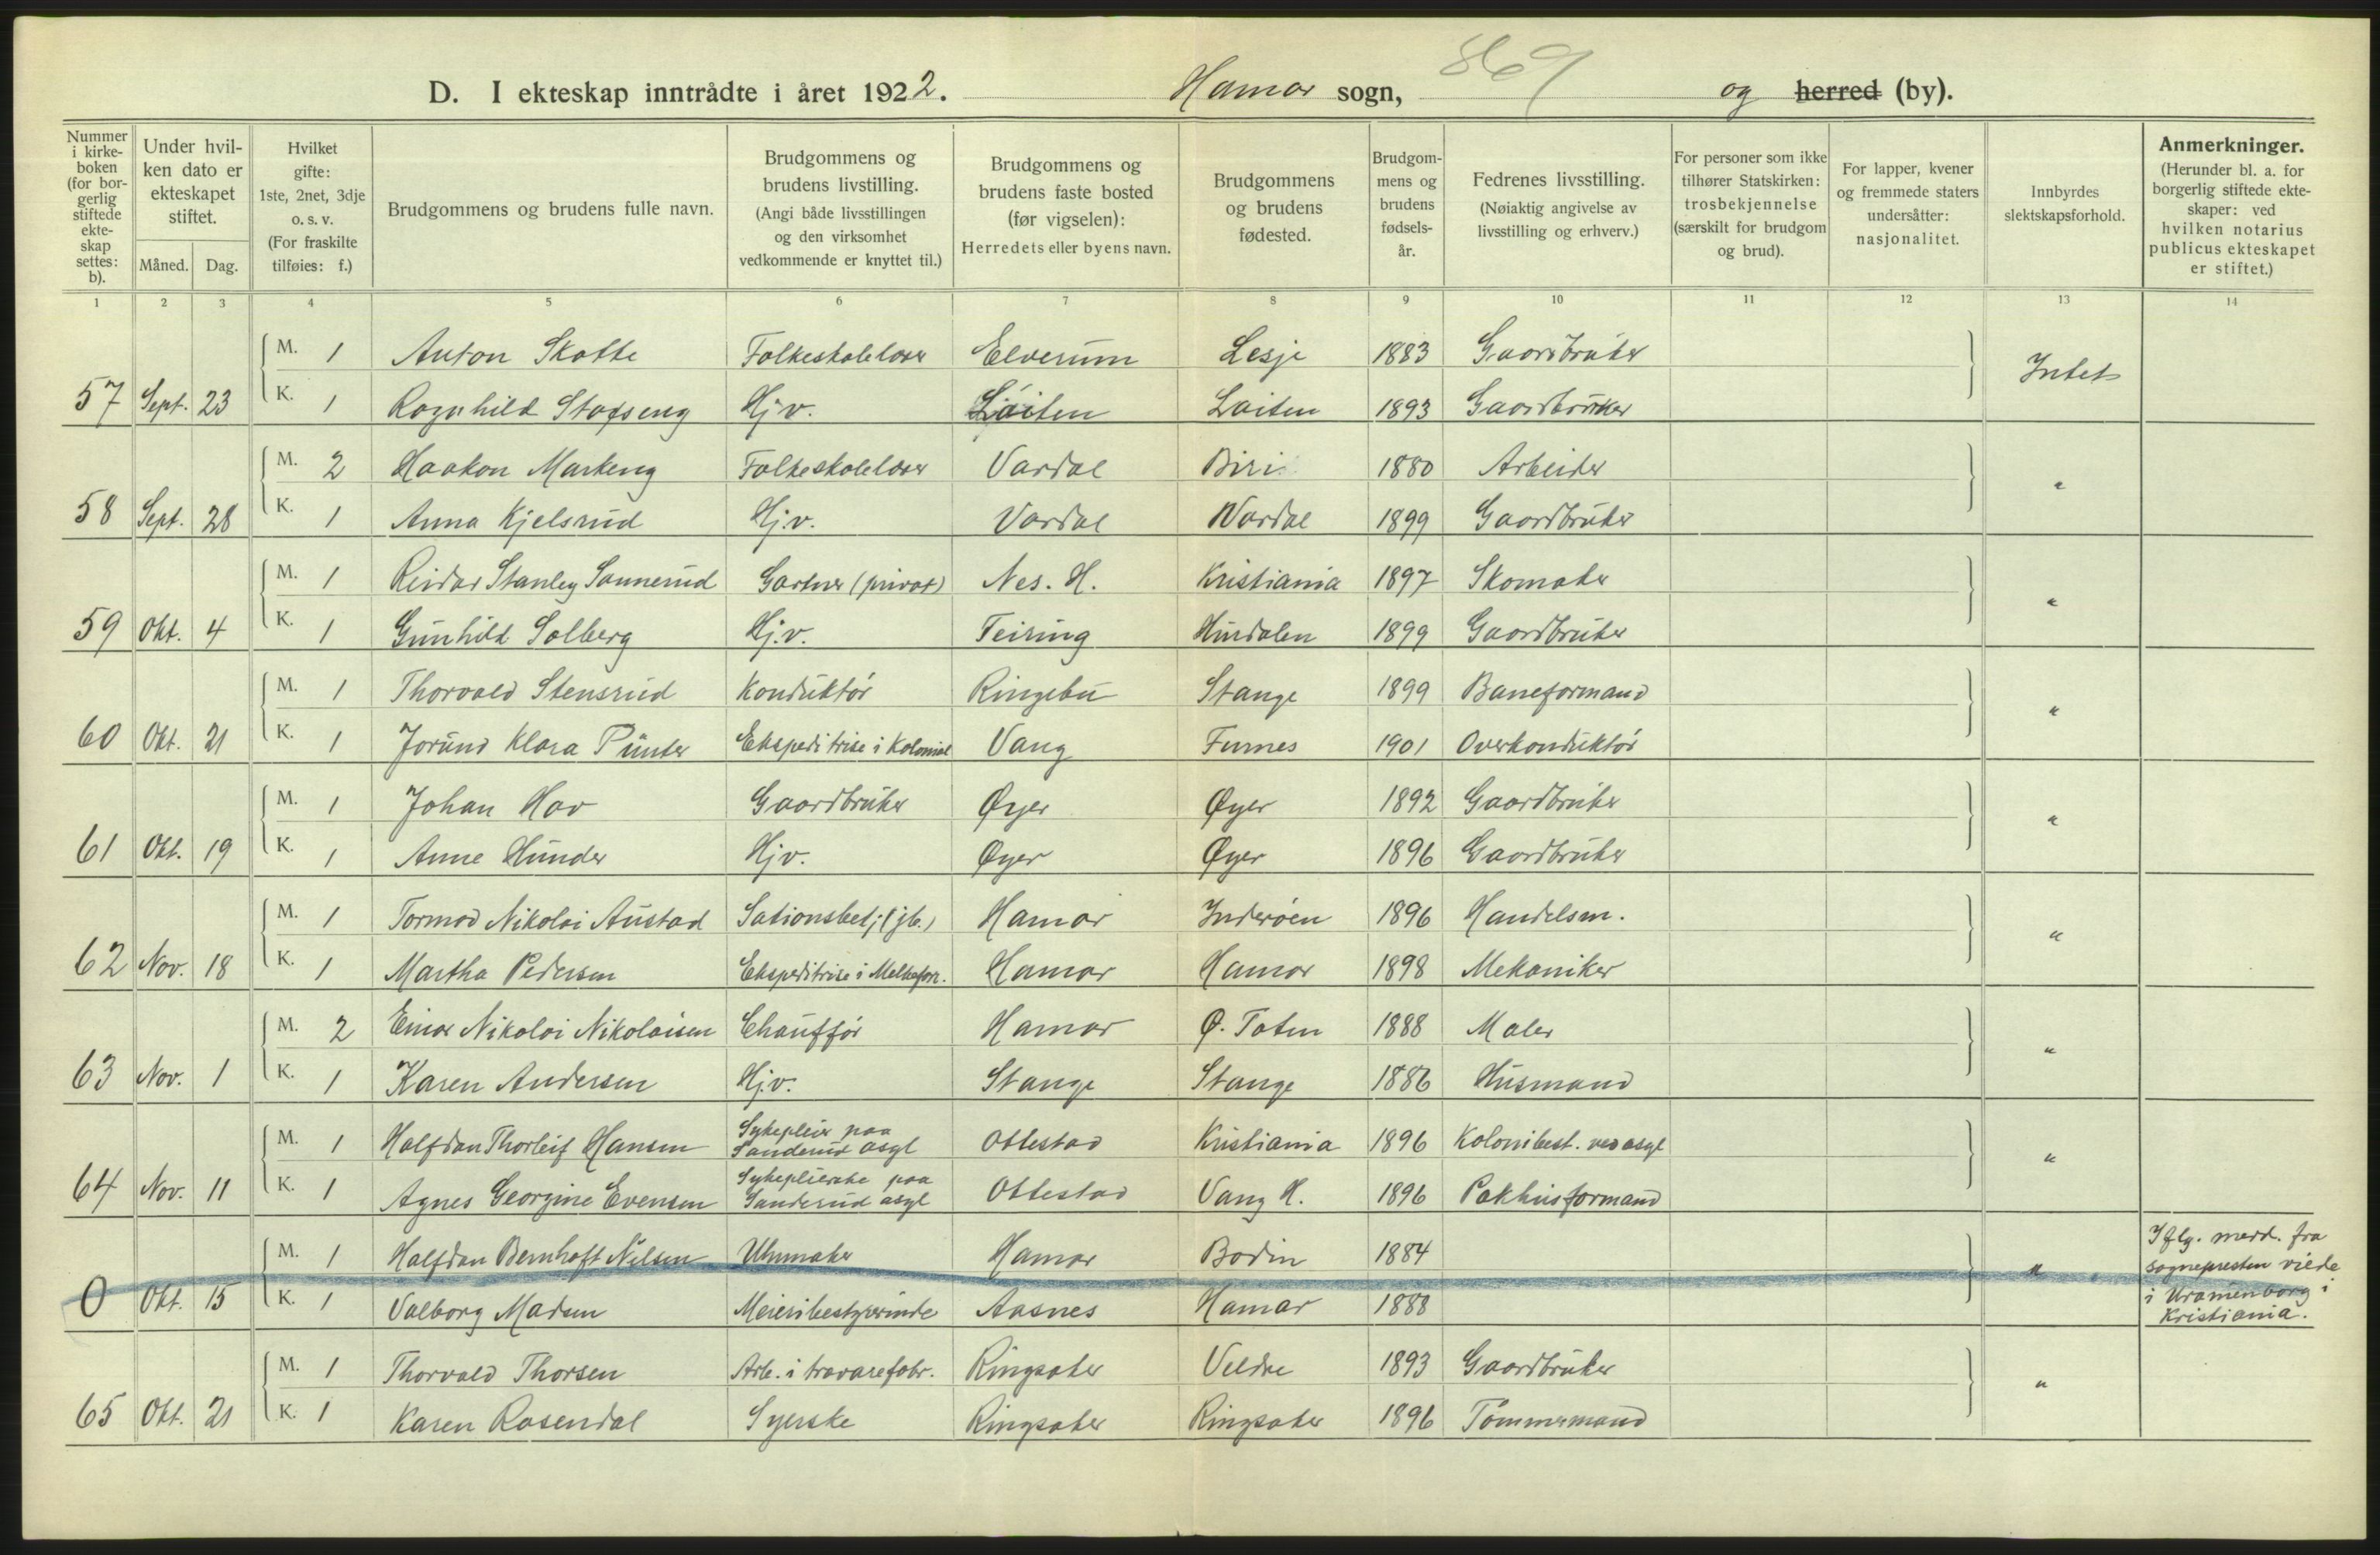 869
D. I ekteskap inntrådte i året 1922. Hamar sogn, og herred (by).
Nummer i kirke-boken (for bor-gerlig stiftede ekte-skap settes: b).
Under hvil-ken dato er ekteskapet stiftet.
Måned. Dag.
Hvilket gifte: 1ste, 2net, 3dje o. s. v. (For fraskilte tilføies: f.)
Brudgommens og brudens fulle navn.
Brudgommens og brudens livstilling. (Angi både livsstillingen og den virksomhet vedkommende er knyttet til.)
Brudgommens og brudens faste bosted (før vigselen): Herredets eller byens navn.
Brudgommens og brudens fødested.
Brudgom-mens og brudens fødsels-år.
Fedrenes livsstilling. (Nøiaktig angivelse av livsstilling og erhverv.)
For personer som ikke tilhører Statskirken: trosbekjennelse (særskilt for brudgom og brud).
For lapper, kvener og fremmede staters undersåtter: nasjonalitet.
Innbyrdes slektskapsforhold.
Anmerkninger. (Herunder bl. a. for borgerlig stiftede ekte-skaper: ved hvilken notarius publicus ekteskapet er stiftet.)
1 2 3 4 5 6 7 8 9 10 11 12 13 14
M. 1 Anton Skotte Folkeskolelærer Elverum Lesje 1883 Gaardbruker Intet
57 Sept. 23 K. 1 Ragnhild Stofseng Hj.v. Løiten Løiten 1893 Gaardbruker
M. 2 Haakon Markeng Folkeskolelærer Vardal Biri 1880 Arbeider "
58 Sept. 28 K. 1 Anna Kjelsrud Hj.v. Vardal Vardal 1899 Gaardbruker
M. 1 Reidar Stanley Sannerud Gartner (privat) Nes. H. Kristiania 1897 Skomaker "
59 Okt. 4 K. 1 Gunhild Solberg Hj.v. Feiring Hurdalen 1899 Gaardbruker
M. 1 Thorvald Stensrud Konduktør Ringebu Stange 1899 Baneformand "
60 Okt. 21 K. 1 Jorund Klara Pünter Ekspeditrise i Kolonial Vang Furnes 1901 Overkonduktør
M. 1 Johan Hov Gaardbruker Øyer Øyer 1892 Gaardbruker "
61 Okt. 19 K. 1 Anne Hunder Hjv. Øyer Øyer 1896 Gaardbruker
M. 1 Tormod Nikolai Austad Sationsbetj. (jb.) Hamar Inderøen 1896 Handelsm. "
62 Nov. 18 K. 1 Martha Pedersen Ekspeditrise i Melkeforr. Hamar Hamar 1898 Mekaniker
M. 2 Einar Nikolai Nikolaisen Chauffør Hamar Ø. Toten 1888 Maler "
63 Nov. 1 K. 1 Karen Andersen Hj.v. Stange Stange 1886 Husmand
M. 1 Halfdan Thorleif Hansen Sykepleier paa Sanderud asyl Ottestad Kristiania 1896 Kolonibest. ved asyl "
64 Nov. 11 K. 1 Agnes Georgine Evensen Sykepleierske paa Sanderud asyl Ottestad Vang H. 1896 Pakhusformand
M. 1 Halfdan Bernhoft Nilsen Uhrmaker Hamar Bodin 1884 " Iflg. medd. fra sognepresten viede i Uranienborg i Kristiania.
0 Okt. 15 K. 1 Valborg Madsen Meieribestyrerinde Aasnes Hamar 1888
M. 1 Thorvald Thorsen Arb. i trævarefabr. Ringsaker Veldre 1893 Gaardbruker "
65 Okt. 21 K. 1 Karen Rosendal Syerske Ringsaker Ringsaker 1896 Tømmermand